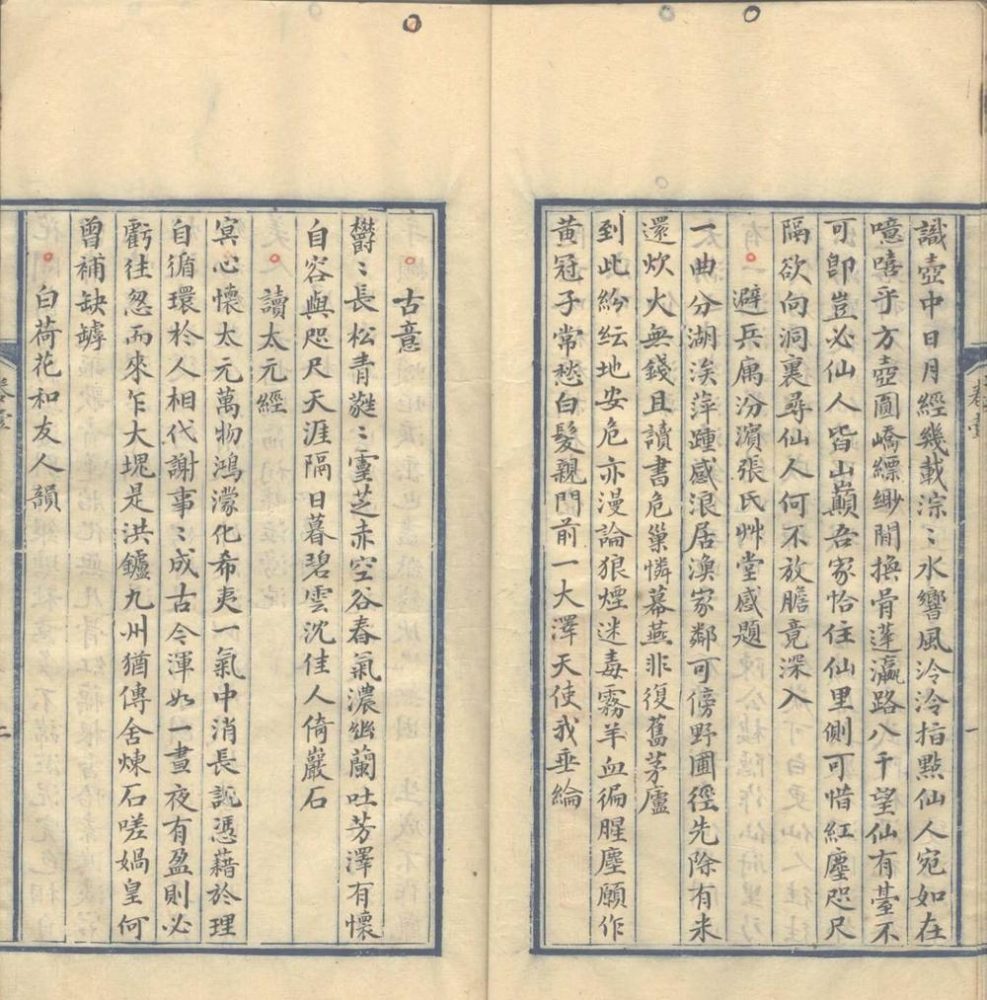 識壺中日月經幾載淙〻水響風泠泠指點仙人宛如在
噫嘻乎方壺圓嶠縹緲間換骨蓬瀛路八千望仙有臺不
可卽豈必仙人皆山巔吾家恰住仙里側可惜紅塵咫尺
隔欲向洞裏尋仙人何不放膽竟深入
避兵寓汾濱張氏艸堂感題
一曲分湖涘萍踵感浪居漁家鄰可傍野圃徑先除有米
還炊火無錢且讀書危巢憐幕燕非復舊茅廬
到此紛紜地安危亦漫論狼煙迷毒霧羊血徧腥塵願作
黃冠子常愁白髮親門前一大澤天使我垂綸
卷壹
一
古意
欝〻長松青蕤〻靈芝赤空谷春氣濃幽蘭吐芳澤有懷
自容與咫尺天涯隔日暮碧雲沈佳人倚巖石
讀太元經
冥心懷太元萬物鴻濛化希夷一氣中消長説憑藉於理
自循環於人相代謝事〻成古今渾如一晝夜有盈則必
虧往忽而來乍大塊是洪鑪九州猶傳舍煉石嗟媧皇何
曾補缺罅
白荷花和友人韻